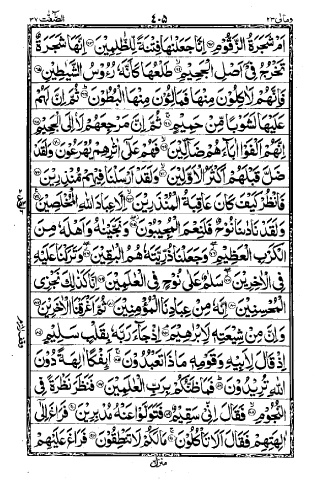 وما لی ٢٣ ٤٠٥ الصّٰفّٰت ٣٧
اَمْ شَجَرَةُ الزَّقُّوْمِ ۝٦٢ اِنَّا جَعَلْنٰهَا فِتْنَةً لِّلظّٰلِمِيْنَ ۝٦٣ اِنَّهَا شَجَرَةٌ
تَخْرُجُ فِيْٓ اَصْلِ الْجَحِيْمِ ۝٦٤ طَلْعُهَا كَاَنَّهٗ رُءُوْسُ الشَّيٰطِيْنِ ۝٦٥
فَاِنَّهُمْ لَاٰكِلُوْنَ مِنْهَا فَمَالِـُٔوْنَ مِنْهَا الْبُطُوْنَ ۝٦٦ ثُمَّ اِنَّ لَهُمْ
عَلَيْهَا لَشَوْبًا مِّنْ حَمِيْمٍ ۝٦٧ ثُمَّ اِنَّ مَرْجِعَهُمْ لَا۠اِلَى الْجَحِيْمِ ۝٦٨
اِنَّهُمْ اَلْفَوْا اٰبَآءَهُمْ ضَآلِّيْنَ ۝٦٩ فَهُمْ عَلٰٓى اٰثٰرِهِمْ يُهْرَعُوْنَ ۝٧٠ وَلَقَدْ
ضَلَّ قَبْلَهُمْ اَكْثَرُ الْاَوَّلِيْنَ ۝٧١ وَلَقَدْ اَرْسَلْنَا فِيْهِمْ مُّنْذِرِيْنَ ۝٧٢
فَانْظُرْ كَيْفَ كَانَ عَاقِبَةُ الْمُنْذَرِيْنَ ۝٧٣ اِلَّا عِبَادَ اللّٰهِ الْمُخْلَصِيْنَ ۝٧٤
وَلَقَدْ نَادٰىنَا نُوْحٌ فَلَنِعْمَ الْمُجِيْبُوْنَ ۝٧٥ وَنَجَّيْنٰهُ وَاَهْلَهٗ مِنَ
الْكَرْبِ الْعَظِيْمِ ۝٧٦ وَجَعَلْنَا ذُرِّيَّتَهٗ هُمُ الْبٰقِيْنَ ۝٧٧ وَتَرَكْنَا عَلَيْهِ
فِي الْاٰخِرِيْنَ ۝٧٨ سَلٰمٌ عَلٰى نُوْحٍ فِي الْعٰلَمِيْنَ ۝٧٩ اِنَّا كَذٰلِكَ نَجْزِي
الْمُحْسِنِيْنَ ۝٨٠ اِنَّهٗ مِنْ عِبَادِنَا الْمُؤْمِنِيْنَ ۝٨١ ثُمَّ اَغْرَقْنَا الْاٰخَرِيْنَ ۝٨٢
وَاِنَّ مِنْ شِيْعَتِهٖ لَاِبْرٰهِيْمَ ۝٨٣ اِذْ جَآءَ رَبَّهٗ بِقَلْبٍ سَلِيْمٍ ۝٨٤
اِذْ قَالَ لِاَبِيْهِ وَقَوْمِهٖ مَاذَا تَعْبُدُوْنَ ۝٨٥ اَئِفْكًا اٰلِهَةً دُوْنَ
اللّٰهِ تُرِيْدُوْنَ ۝٨٦ فَمَا ظَنُّكُمْ بِرَبِّ الْعٰلَمِيْنَ ۝٨٧ فَنَظَرَ نَظْرَةً فِي
النُّجُوْمِ ۝٨٨ فَقَالَ اِنِّيْ سَقِيْمٌ ۝٨٩ فَتَوَلَّوْا عَنْهُ مُدْبِرِيْنَ ۝٩٠ فَرَاغَ اِلٰٓى
اٰلِهَتِهِمْ فَقَالَ اَلَا تَاْكُلُوْنَ ۝٩١ مَا لَكُمْ لَا تَنْطِقُوْنَ ۝٩٢ فَرَاغَ عَلَيْهِمْ
منزل